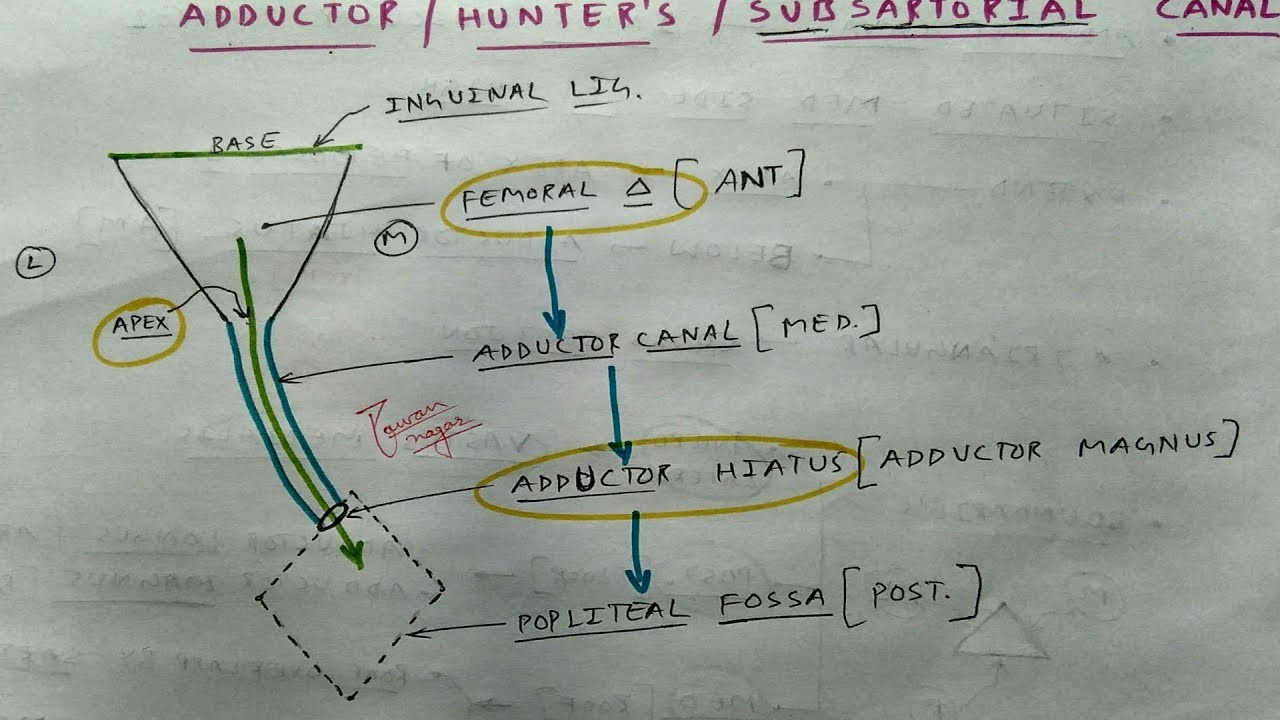 ADDUCTOR / HUNTER'S / SUBSARTORIAL CANAL
INGUINAL LIG.
BASE
FEMORAL Δ [ANT]
M
L
APEX
ADDUCTOR CANAL [MED.]
Pawan
nagar
ADDUCTOR HIATUS [ADDUCTOR MAGNUS]
POPLITEAL FOSSA [POST.]